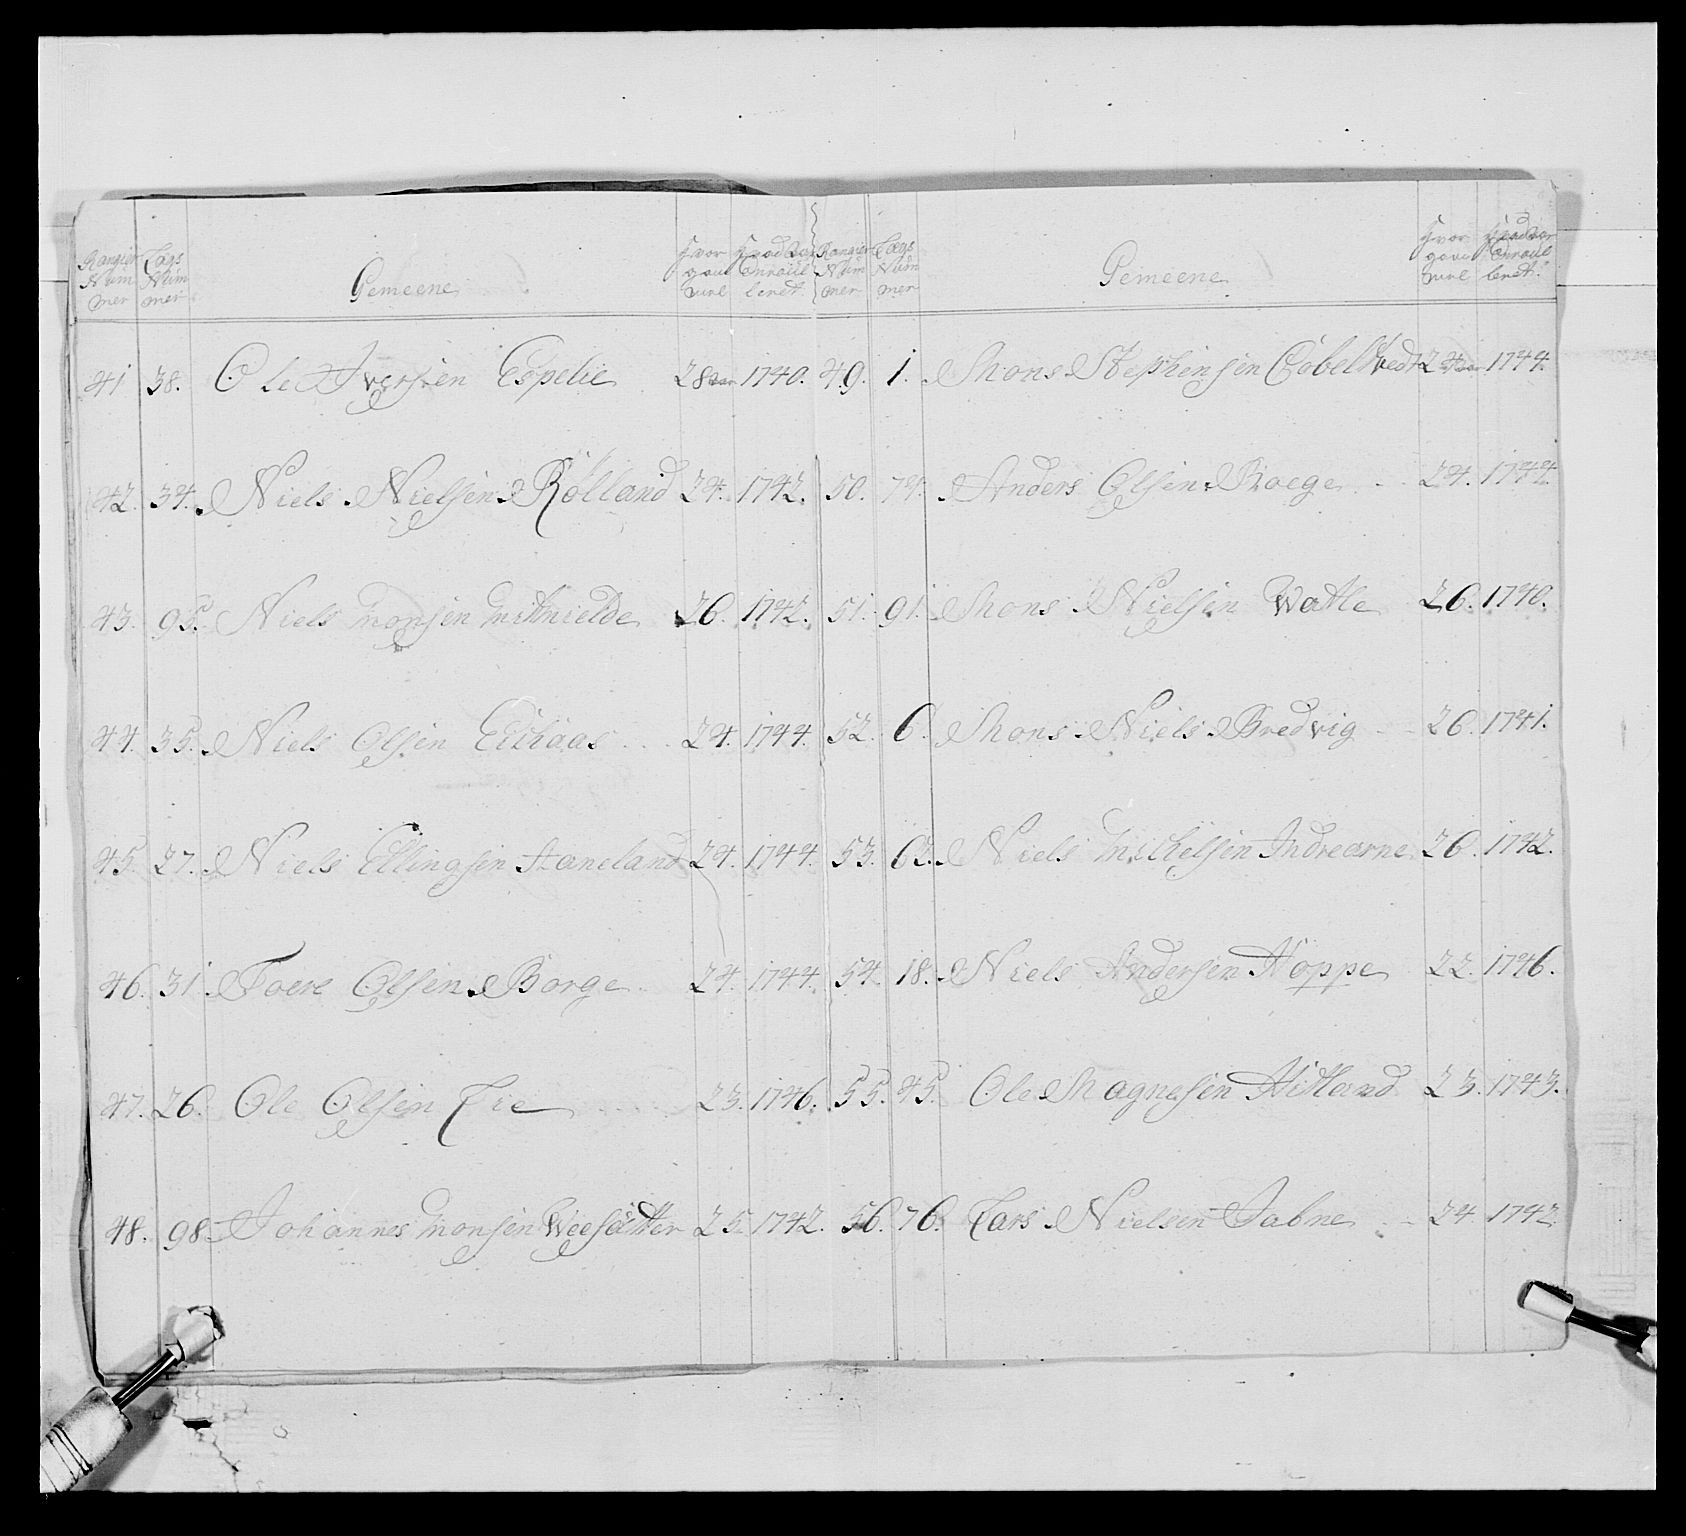 Rangier Num mer
Lægs Num mer
Gemeene
Hvor gaml
Hvad aar Enroul leret
Rangier Num mer
Lægs Num mer
Gemeene
Hvor gaml
Hvad aar Enroul leret
41 38. Ole Iversen Espelie 28 aar 1740.
42. 34. Niels Nielsen Rölland 24. 1742.
43. 95. Niels Monsen Mitnielde 26. 1742.
44. 35. Niels Olsen Eithaas 24. 1744.
45. 27. Niels Ellingsen Haneland 24. 1744.
46. 31. Toere Olsen Borge 24. 1744.
47. 26. Ole Olsen Lie 23. 1746.
48. 98. Johannes Monsen Weesætter 25. 1742.
49. 1. Mons Stephensen Cobeltvedt 24 aar 1744.
50. 74. Anders Olsen Roege 24. 1744.
51. 91. Mons Nielsen Watle 26. 1740.
52. 6. Mons Niels Bredvig 26. 1741.
53. 62. Niels Michelsen Indrearne 26. 1742.
54. 18. Niels Andersen Hoppe 22. 1746.
55. 45. Ole Magnesen Hitland 23. 1743.
56. 76. Lars Nielsen Sabne 24 1742.